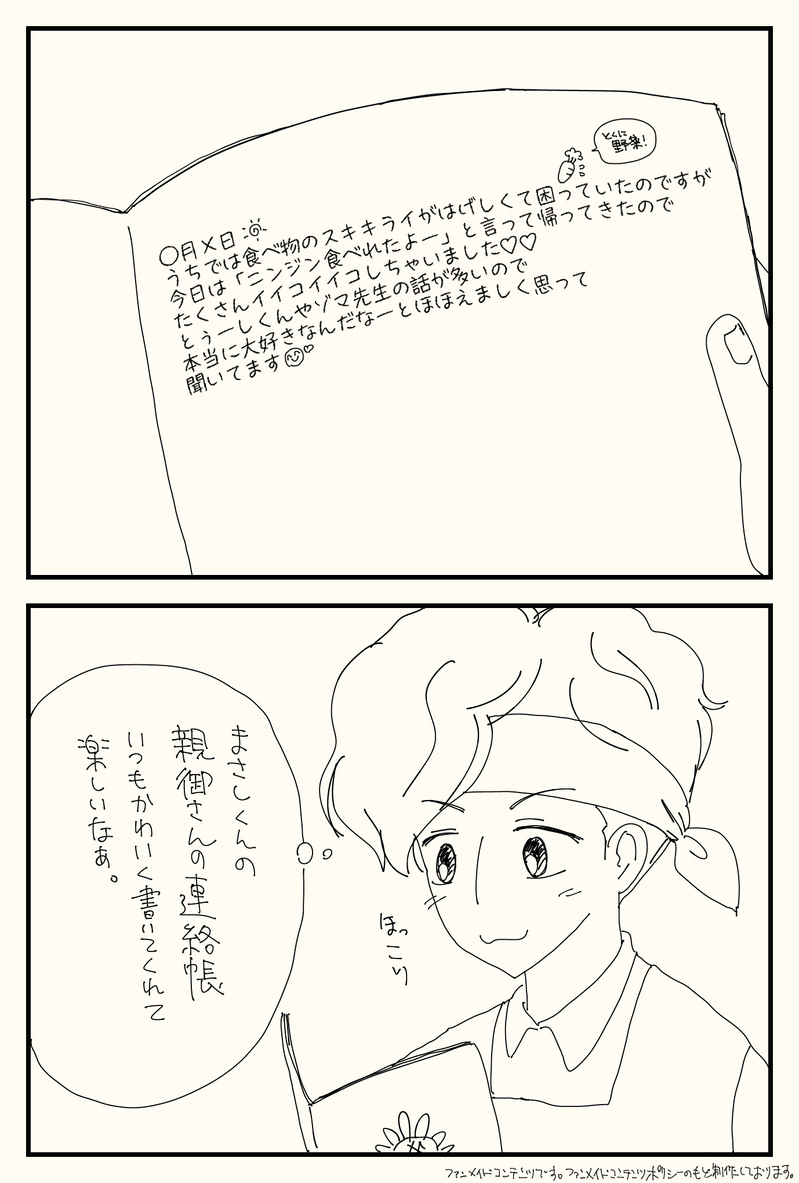 とくに
野菜!
〇月×日
うちでは食べ物のスキキライがはげしくて困っていたのですが
今日は「ニンジン食べれたよー」と言って帰ってきたので
たくさんイイコイイコしちゃいました♡♡
とぅーしくんやゾマ先生の話が多いので
本当に大好きなんだなーとほほえましく思って
聞いてます
まさしくんの
親御さんの連絡帳
いつもかわいく書いてくれて
楽しいなぁ。
ほっこり
ファンメイドコンテンツです。ファンメイドコンテンツポリシーのもと制作しております。